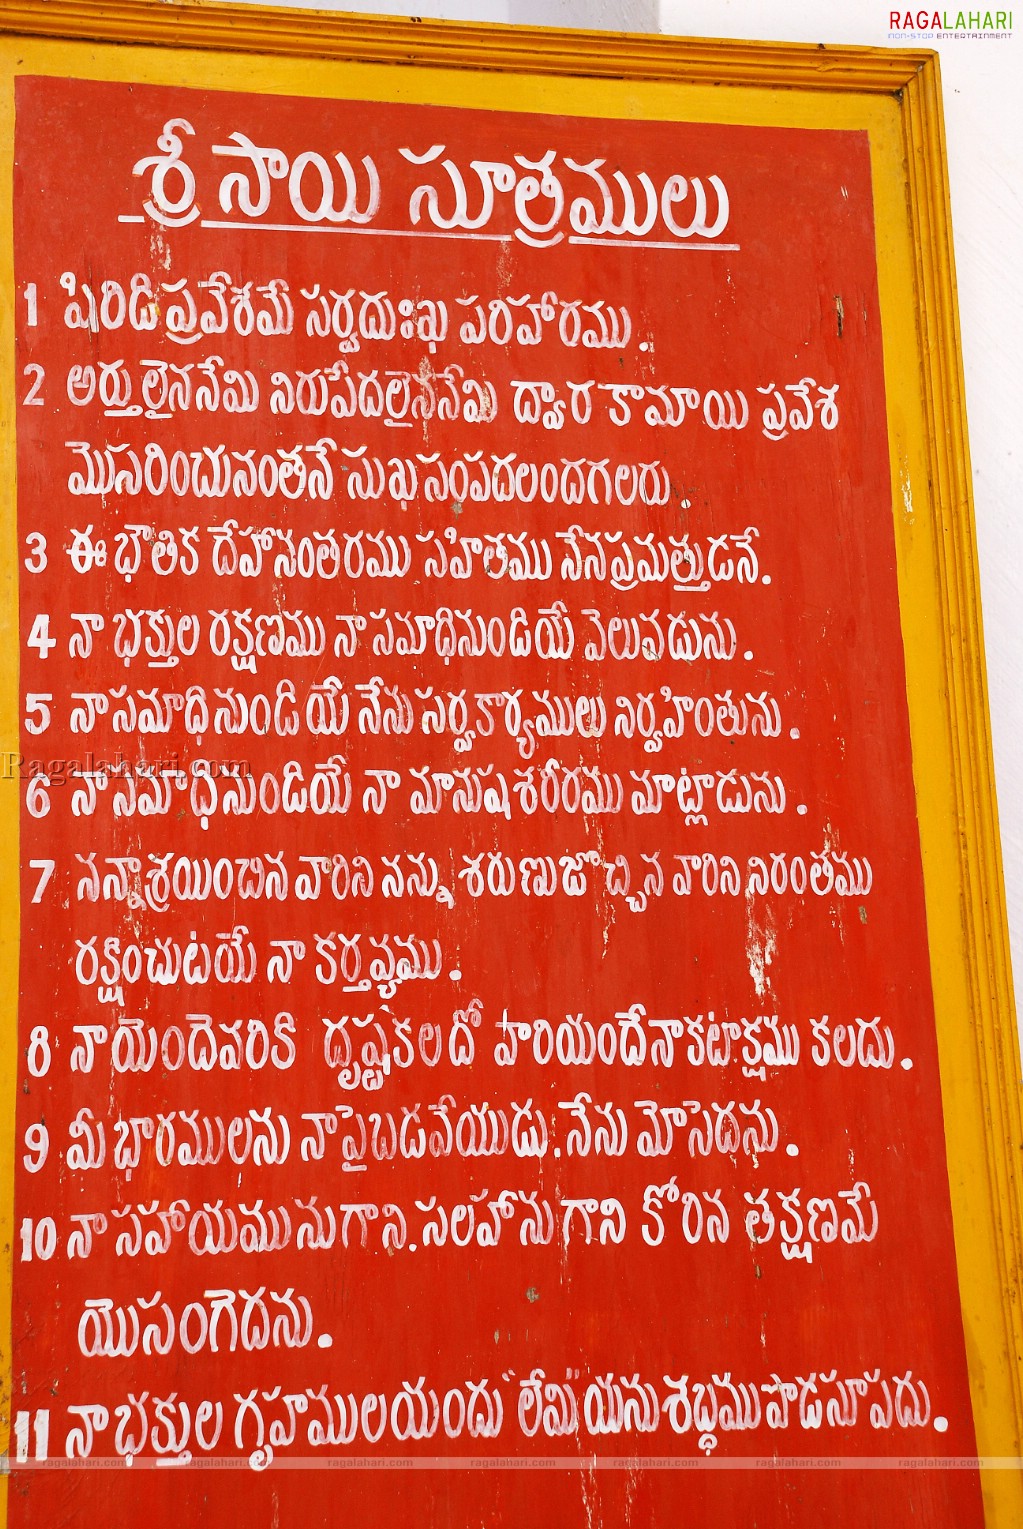 RAGALAHARI
NON-STOP ENTERTAINMENT
శ్రీ సాయి సూత్రములు
1 షిరిడి ప్రవేశమే సర్వదుఃఖ పరిహారము.
2 అర్తులైననేమి నిరుపేదలైననేమి ద్వారకామాయి ప్రవేశ
మొసరించునంతనే సుఖ సంపదలందగలరు.
3 ఈ భౌతిక దేహానంతరము సహితము నేనప్రమత్తుడనే.
4 నా భక్తుల రక్షణము నా సమాధినుండియే వెలువడును.
5 నా సమాధి నుండియే నేను సర్వకార్యములు నిర్వహింతును.
Ragalahari.com
6 నా సమాధి నుండియే నా మానుష శరీరము మాట్లాడును.
7 నన్నాశ్రయించిన వారిని నన్ను శరుణుజొచ్చిన వారిని నిరంతము
రక్షించుటయే నా కర్తవ్యము.
8 నాయెందెవరికి దృష్టికలదో వారియందే నాకటాక్షము కలదు.
9 మీ భారములను నాపైబడవేయుడు. నేను మోసెదను.
10 నా సహాయమునుగాని. సలహానుగాని కోరిన తక్షణమే
యొసంగెదను.
11 నా భక్తుల గృహములయందు "లేమి" యను శబ్ధము పొడసూపదు.
ragalahari.com ragalahari.com ragalahari.com ragalahari.com ragalahari.com ragalahari.com ragalahari.com